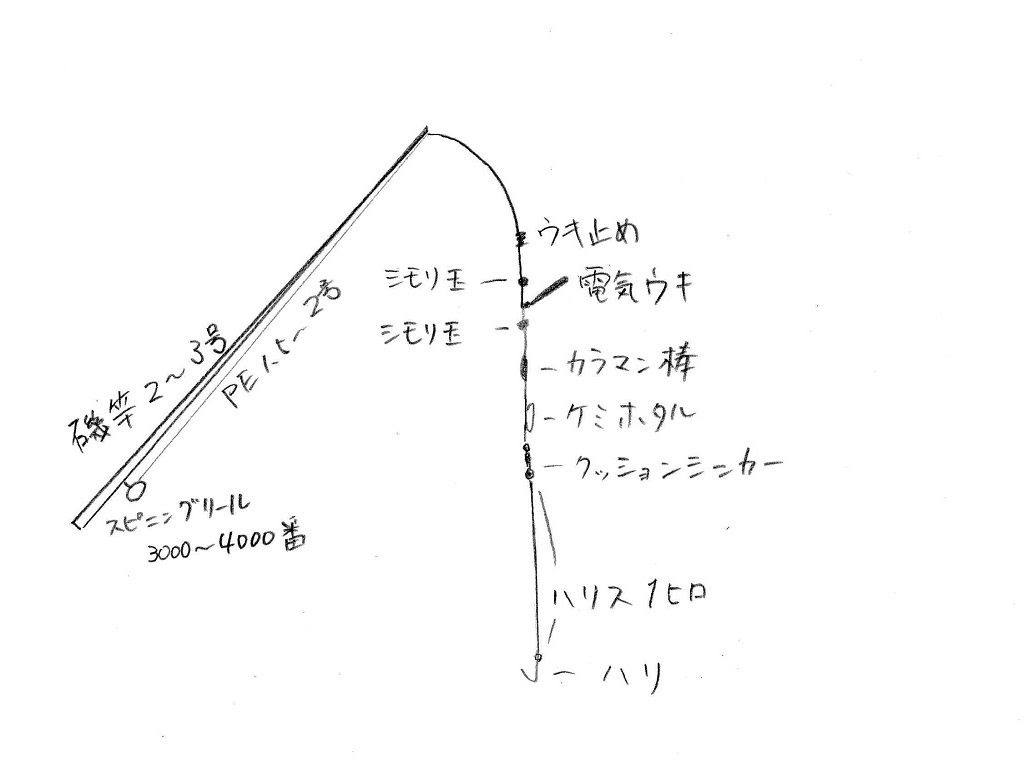 ウキ止め
シモリ玉
電気ウキ
シモリ玉
カラマン棒
ケミホタル
クッションシンカー
磯竿2～3号
PE1.5～2号
スピニングリール
3000～4000番
ハリス1ヒロ
ハリ